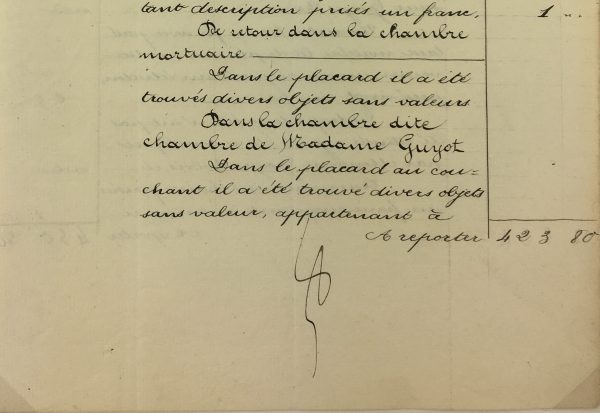 tant description prisés un franc. 1 "
De retour dans la chambre
mortuaire
Dans le placard il a été
trouvés divers objets sans valeurs
Dans la chambre dite
chambre de Madame Guyot
Dans le placard au cou-
chant il a été trouvé divers objets
sans valeur, appartenant à
A reporter 423 80